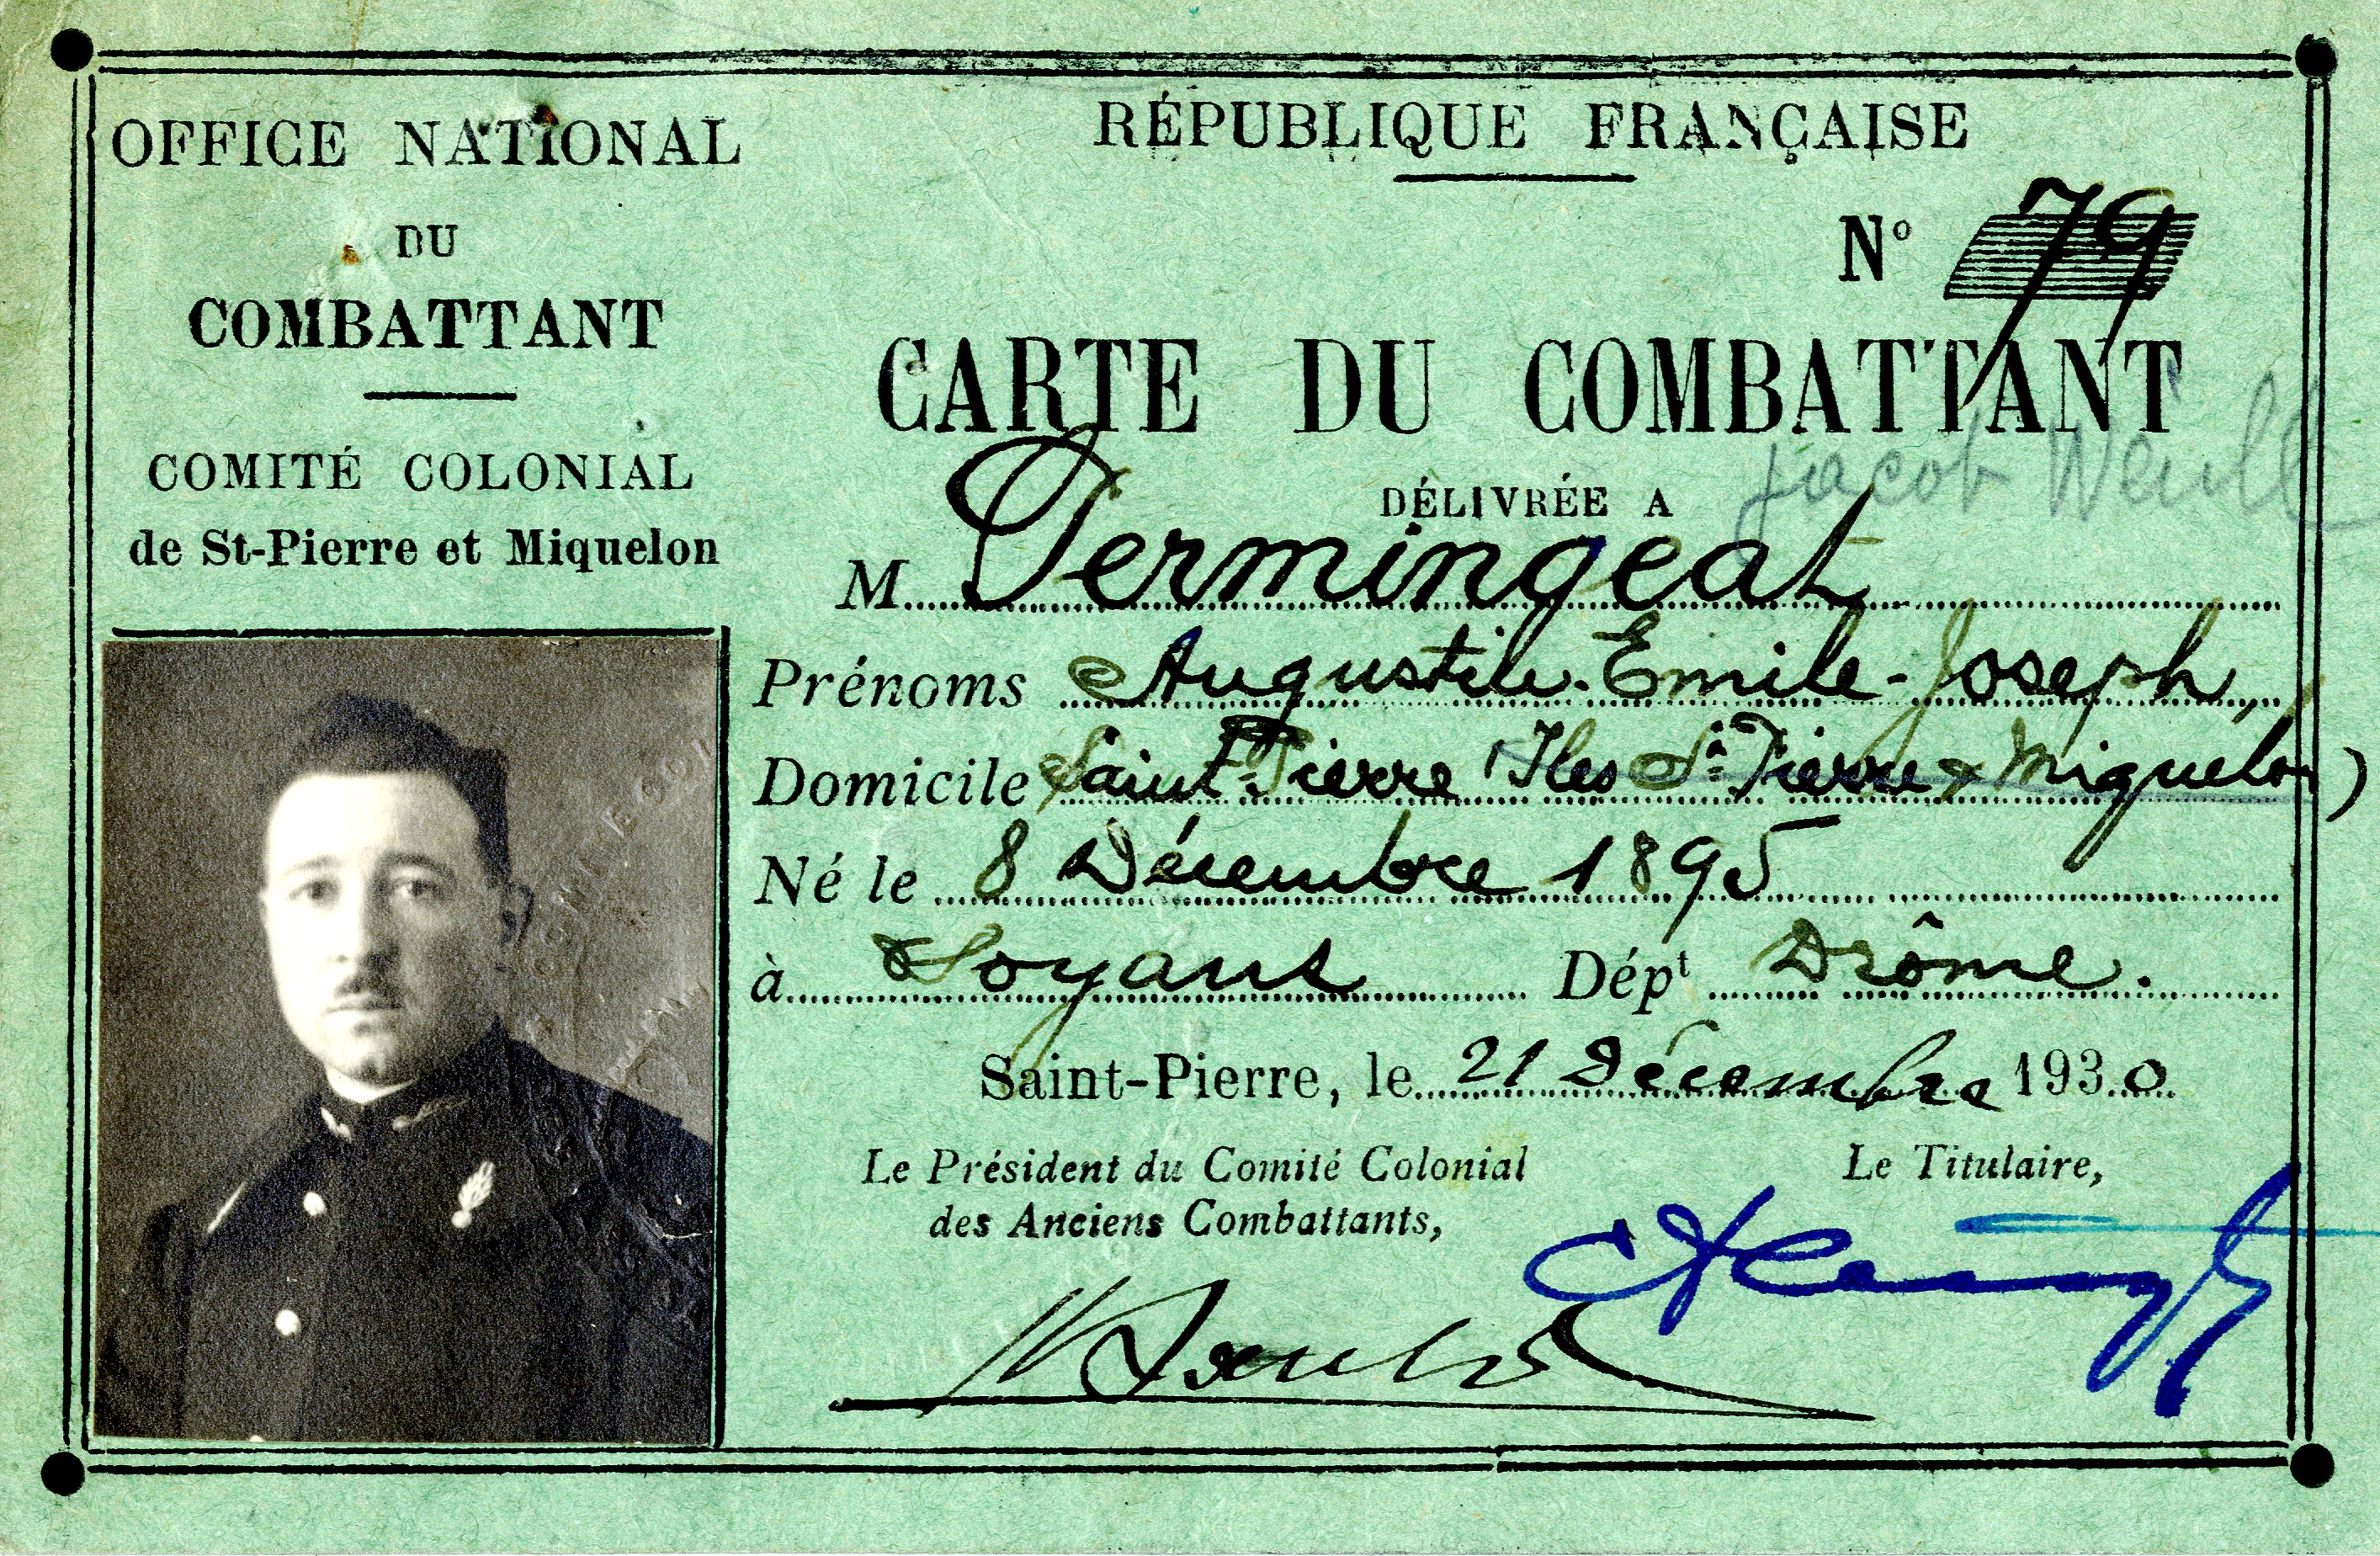 OFFICE NATIONAL
DU
COMBATTANT
COMITÉ COLONIAL
de St-Pierre et Miquelon
RÉPUBLIQUE FRANÇAISE
N° 79
CARTE DU COMBATTANT
DÉLIVRÉE A
Jacob
M. Dermingeat
Prénoms Augustin-Emile-Joseph,
Domicile Saint-Pierre (Iles St-Pierre & Miquelon)
Né le 8 Décembre 1895
à Soyans Dépt Drôme.
Saint-Pierre, le 21 Décembre 1930
Le Président du Comité Colonial
des Anciens Combattants,
Le Titulaire,